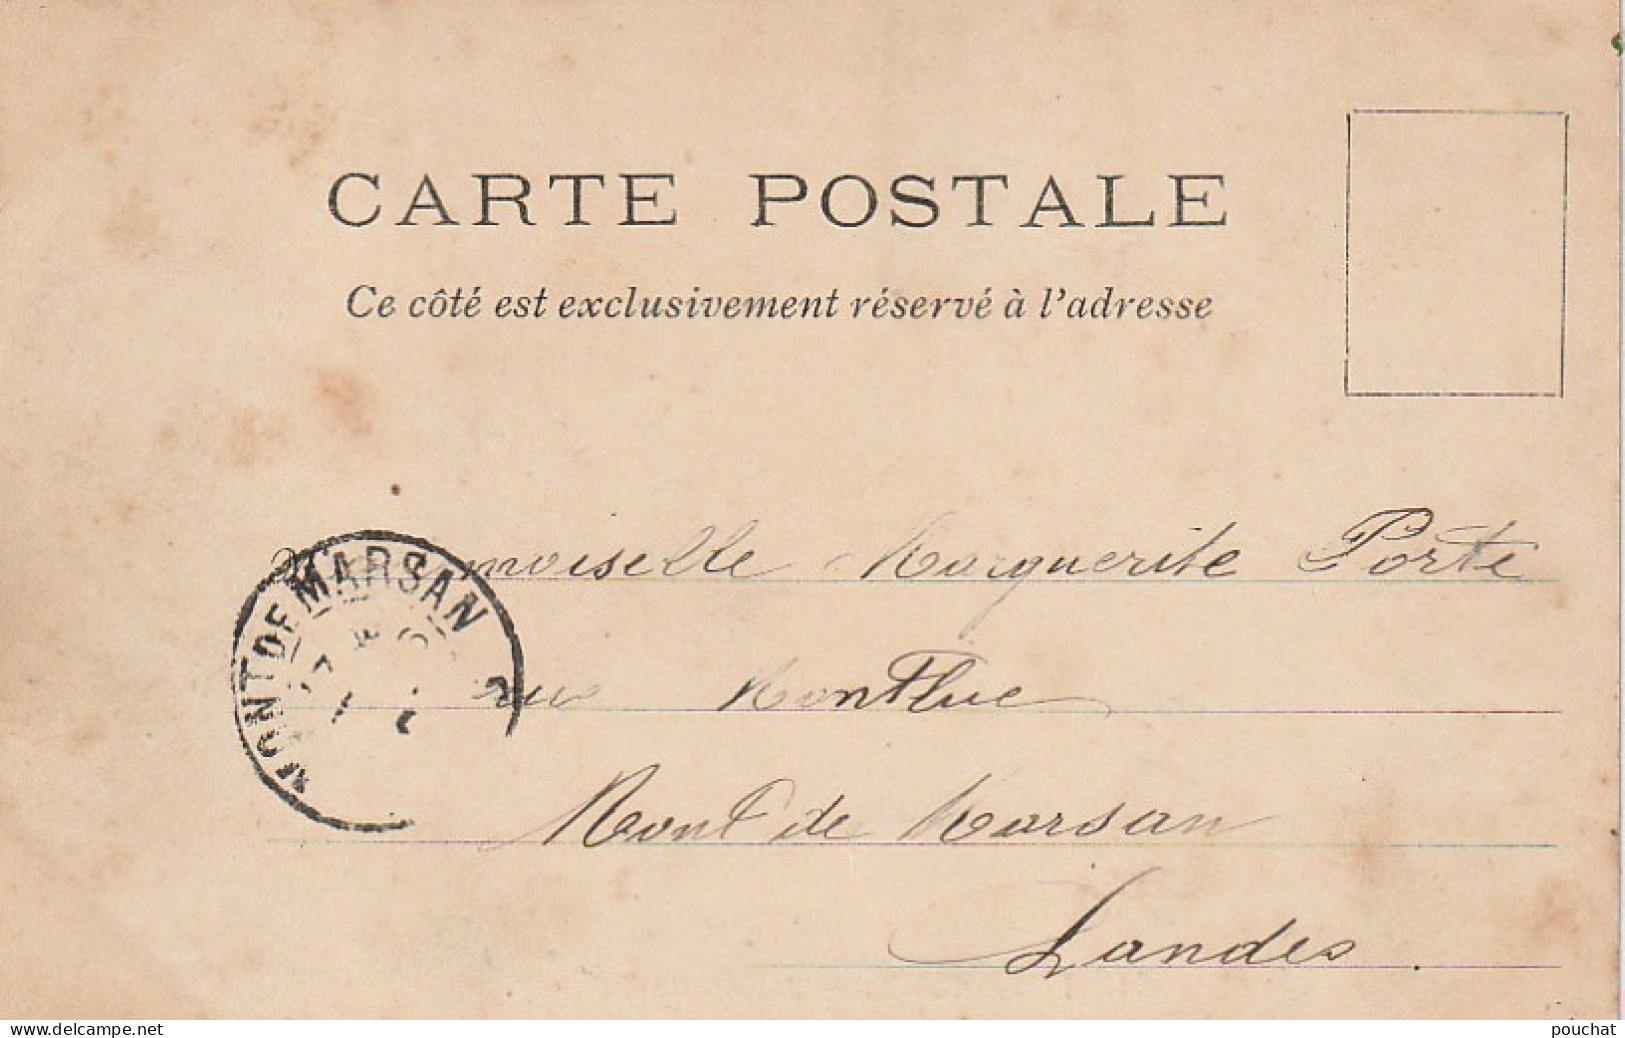 CARTE POSTALE
Ce côté est exclusivement réservé à l'adresse
Mademoiselle Marguerite Porte
rue Montluc
Mont de Marsan
Landes.
MONT DE MARSAN
www.delcampe.net
pouchat